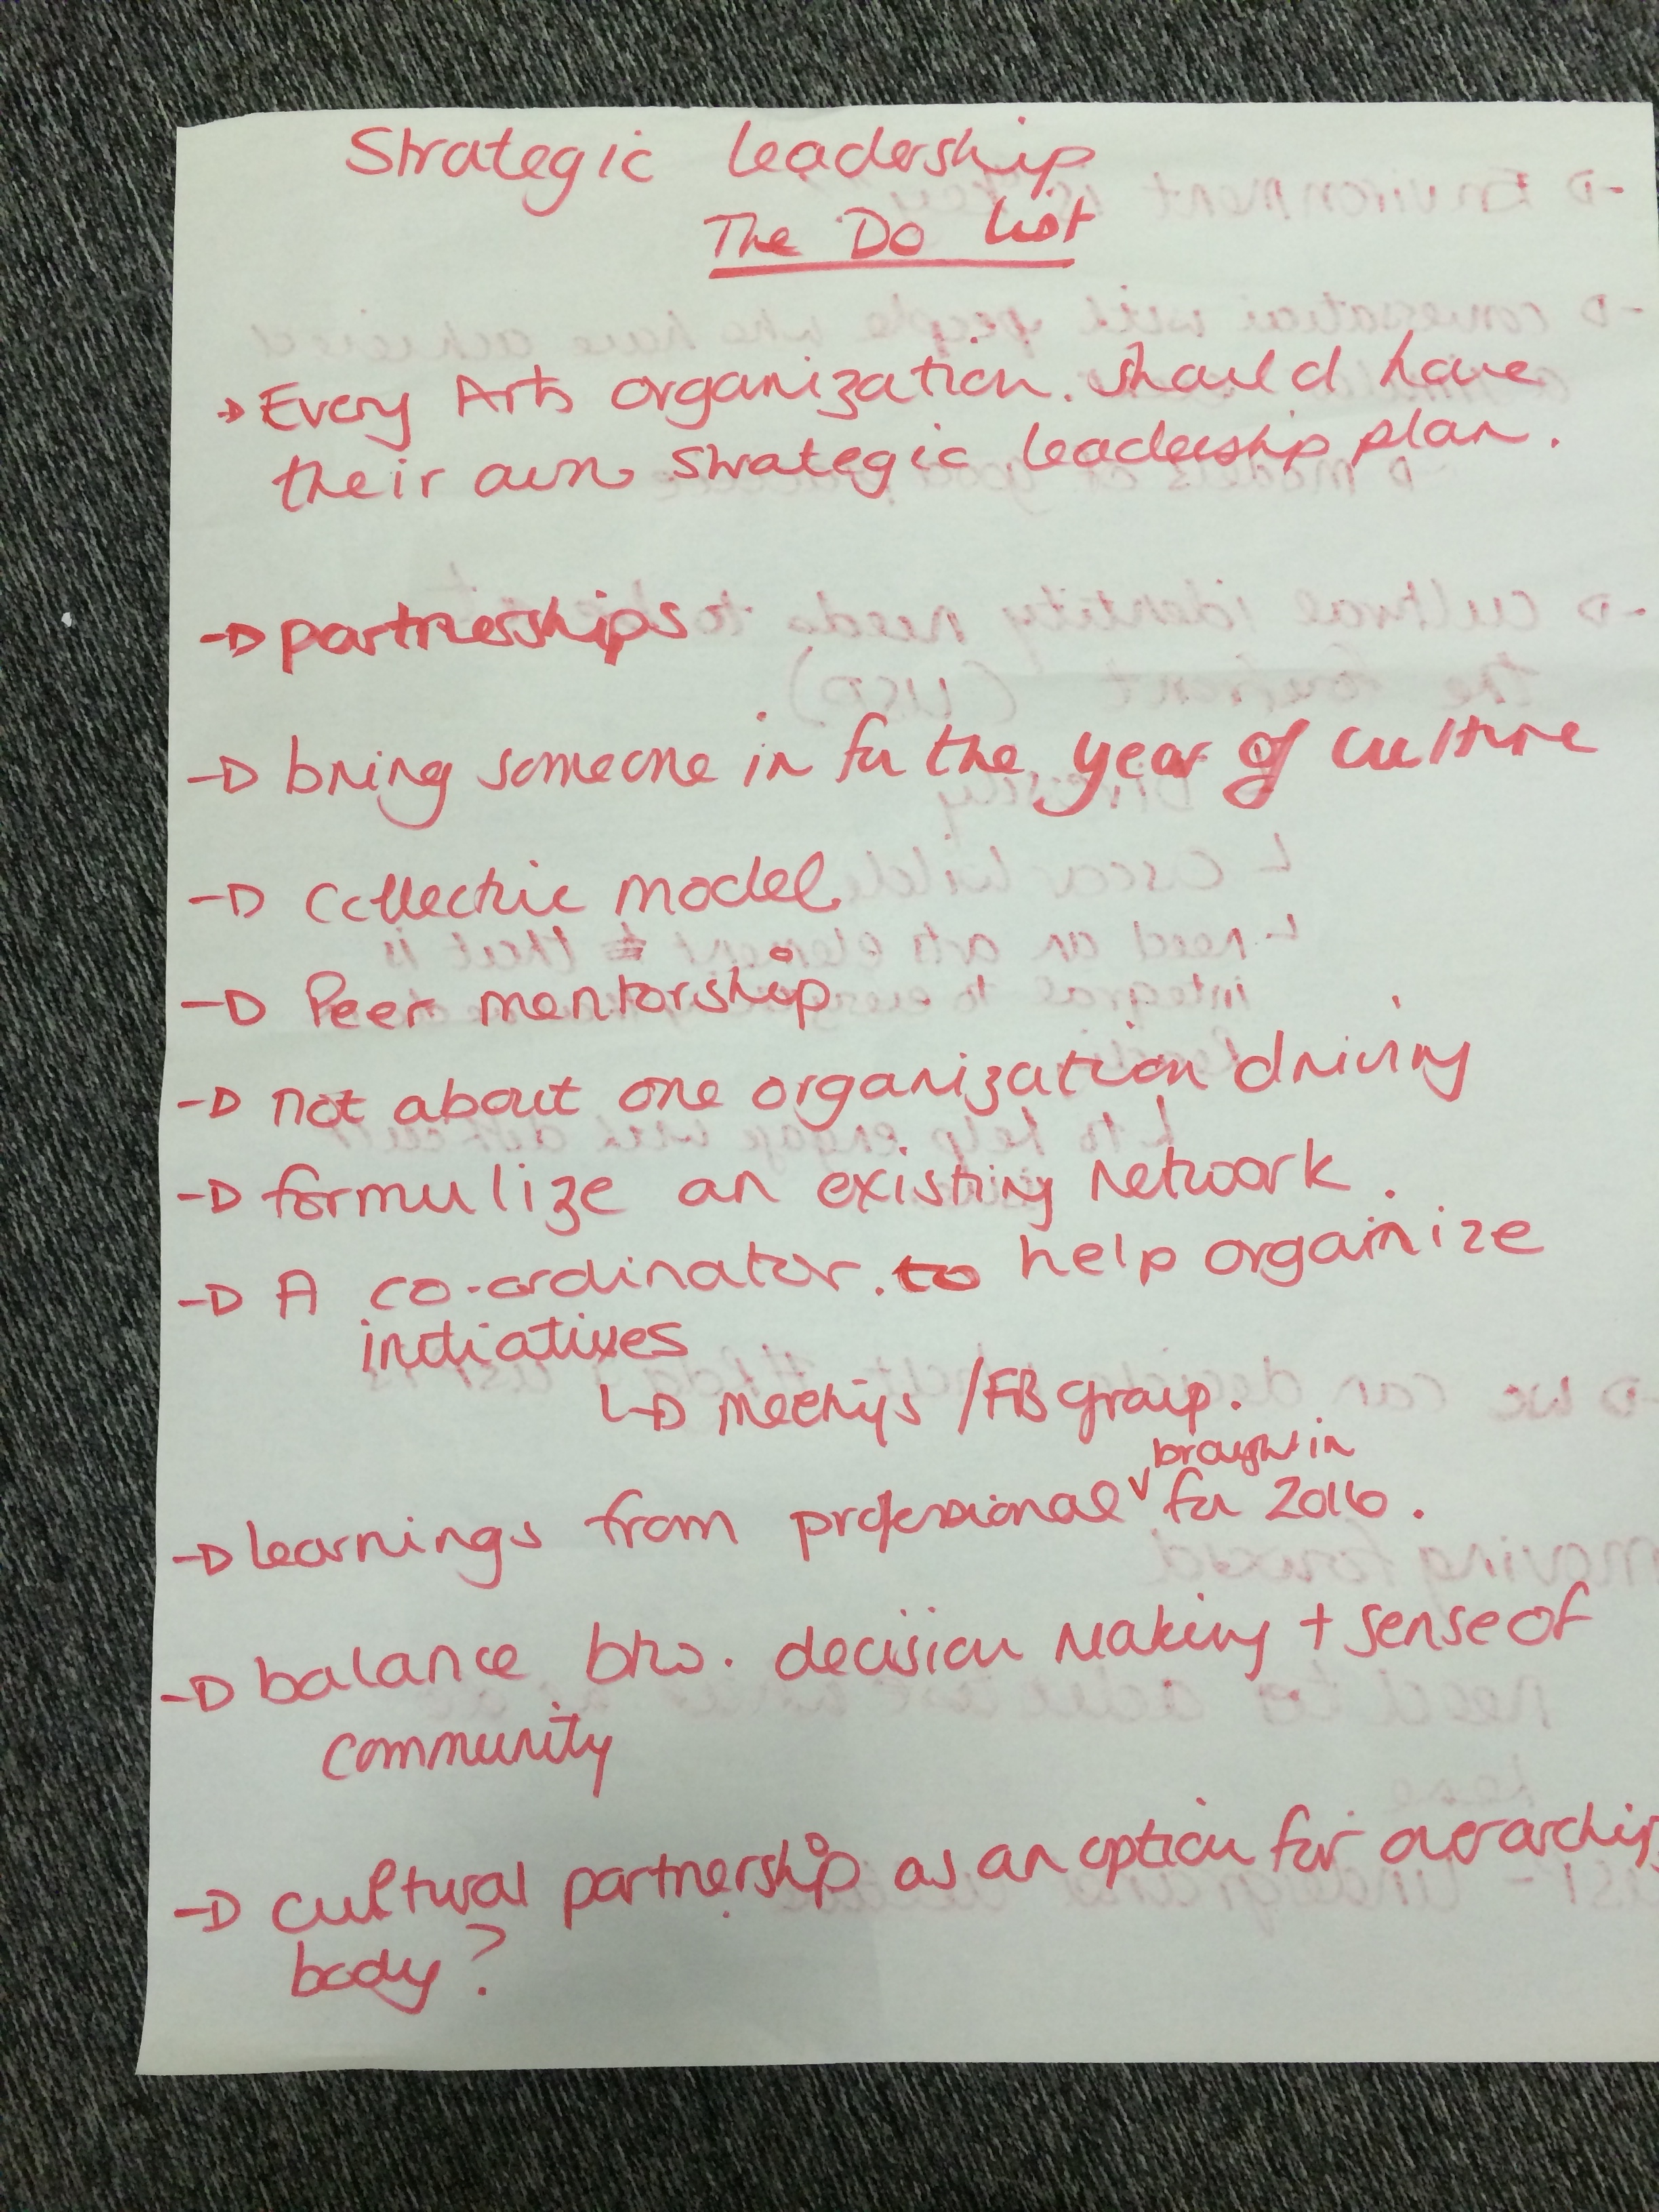 Strategic leadership
The Do list
→ Every Arts organization. should have
their own strategic leadership plan.
→ partnerships
→ bring someone in for the year of culture
→ Collective model
→ Peer mentorship
→ not about one organization driving
→ formulize an existing network.
→ A co-ordinator. to help organize
initiatives
↳ meetings / FB group.
brought in
→ learnings from professional ∨ for 2016.
→ balance btw. decision making + sense of
community
→ cultural partnership as an option for overarching
body?